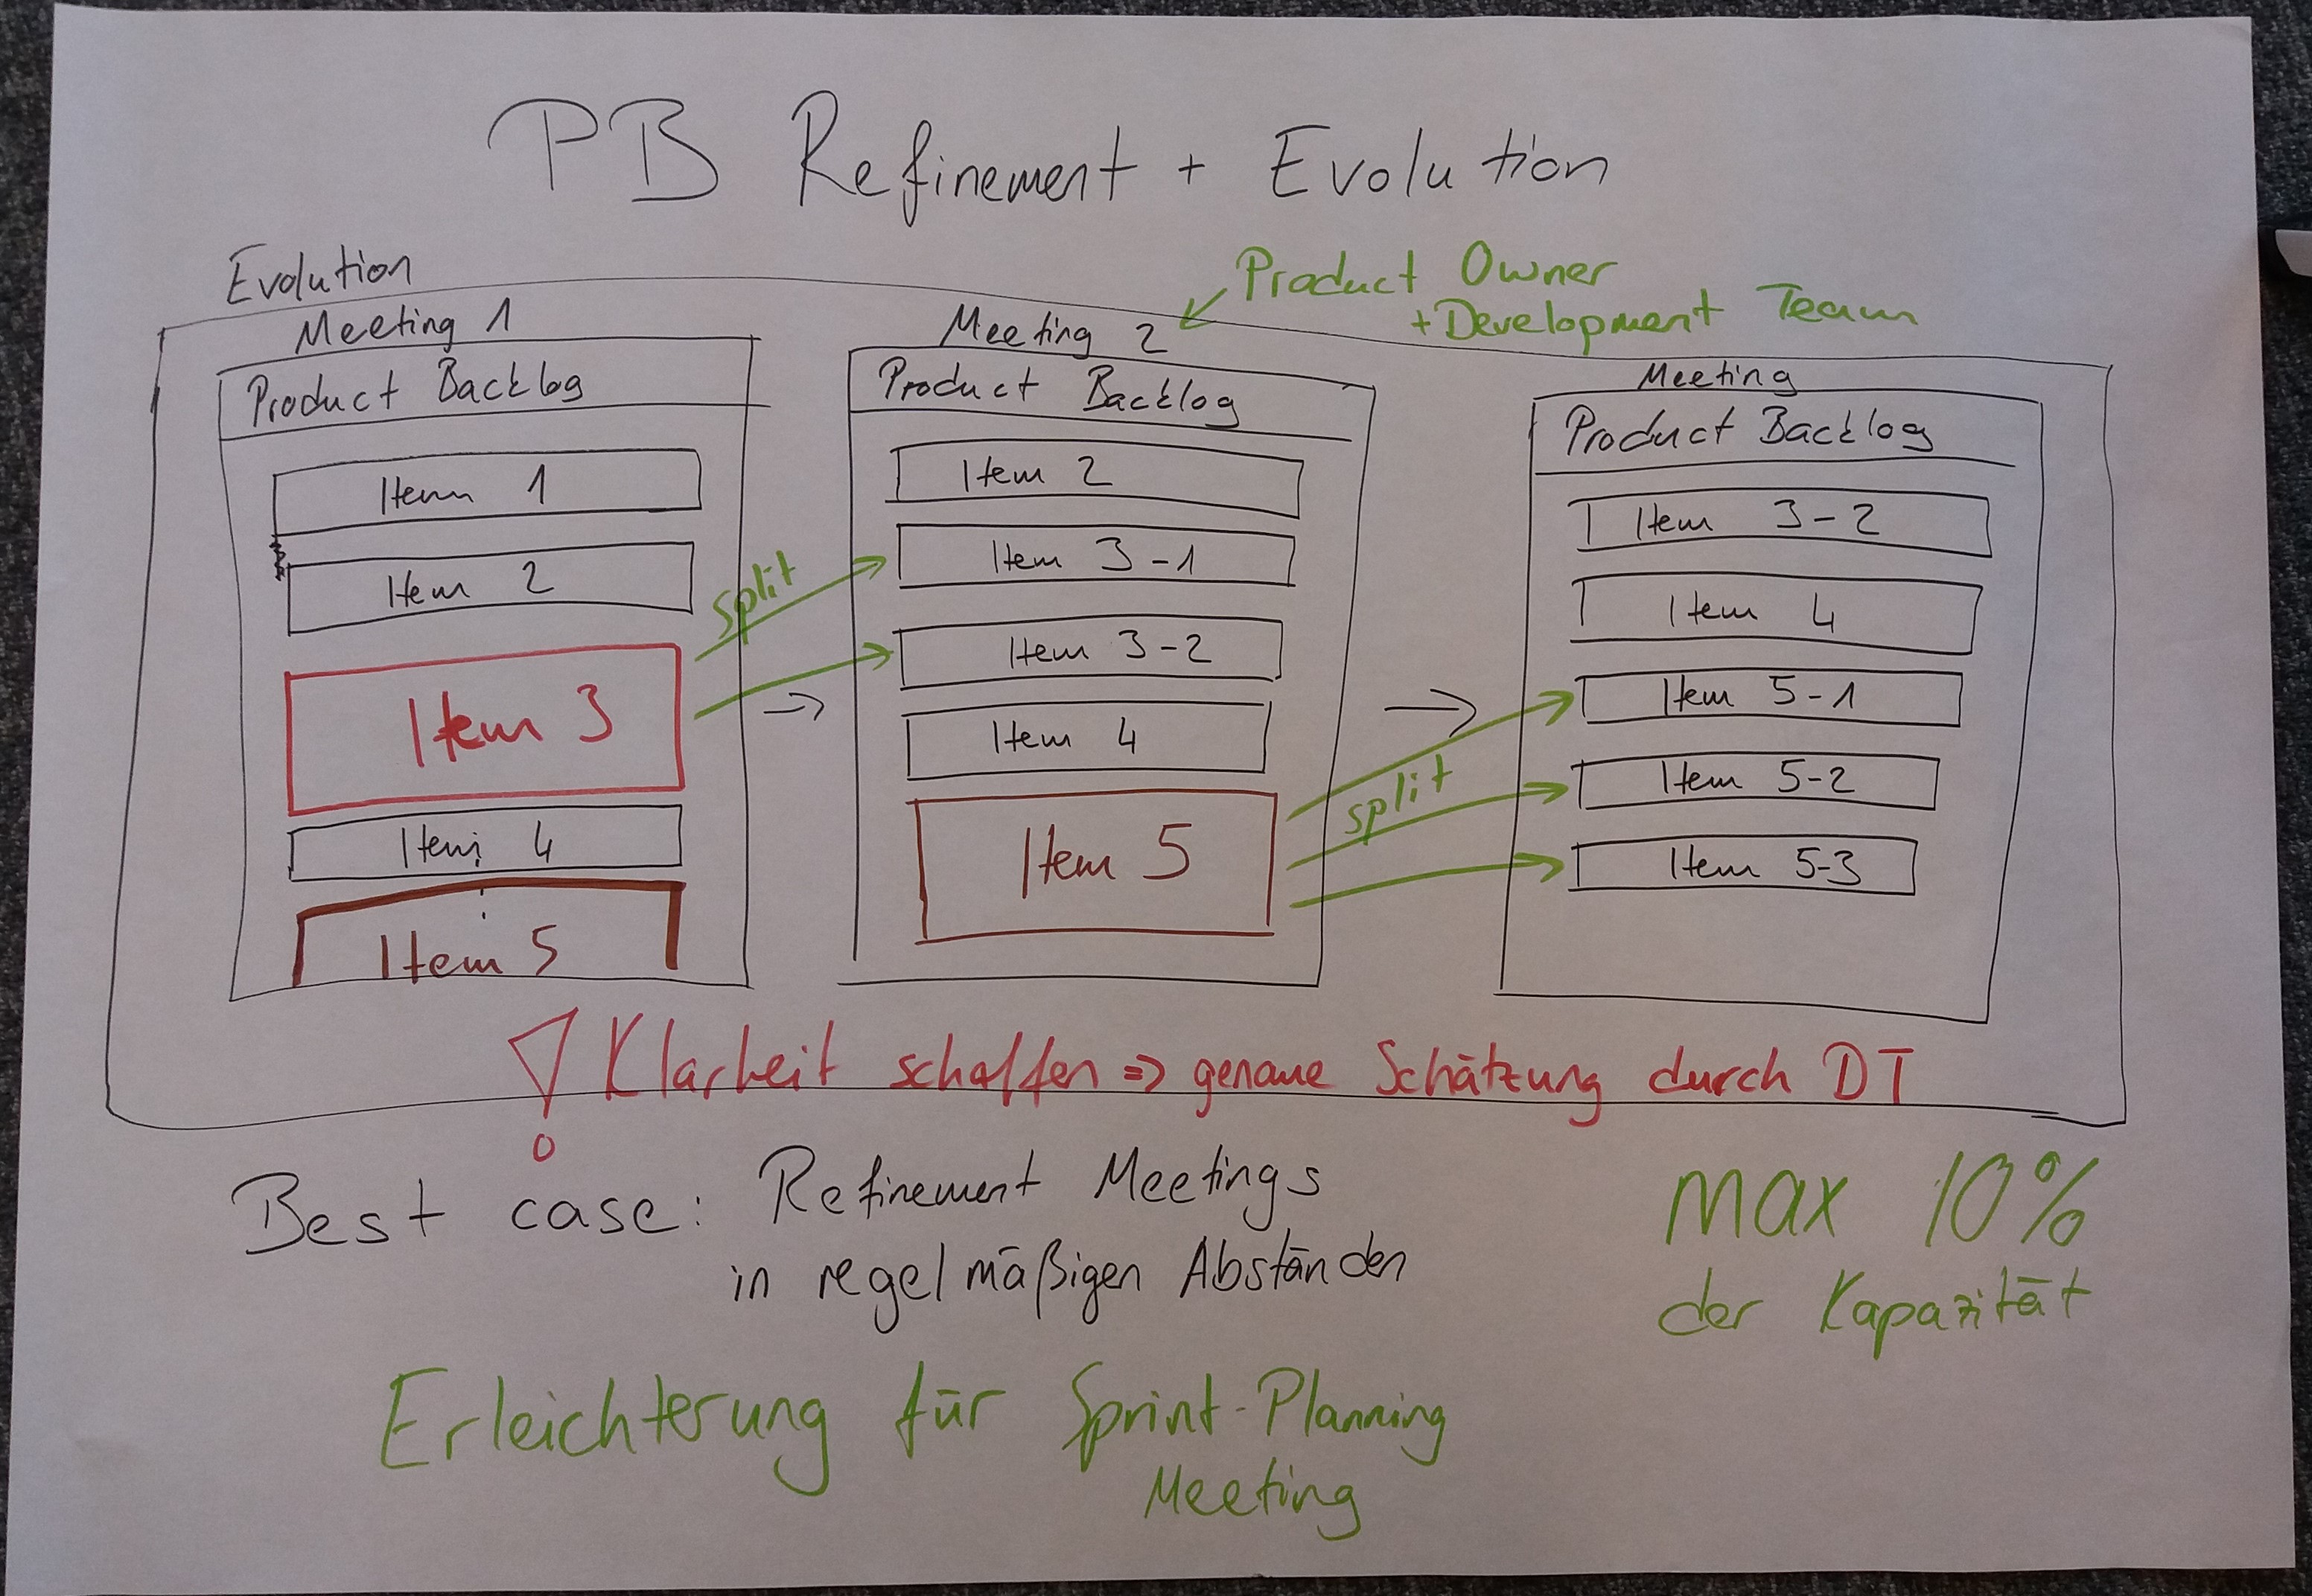 PB Refinement + Evolution
Evolution
Product Owner
+Development Team
Meeting 1
Product Backlog
Item 1
Item 2
Item 3
Item 4
Item 5
split
Meeting 2
Product Backlog
Item 2
Item 3-1
Item 3-2
Item 4
Item 5
split
Meeting
Product Backlog
Item 3-2
Item 4
Item 5-1
Item 5-2
Item 5-3
! Klarheit schaffen => genaue Schätzung durch DT
Best case: Refinement Meetings
in regelmäßigen Abständen
max 10%
der Kapazität
Erleichterung für Sprint-Planning
Meeting